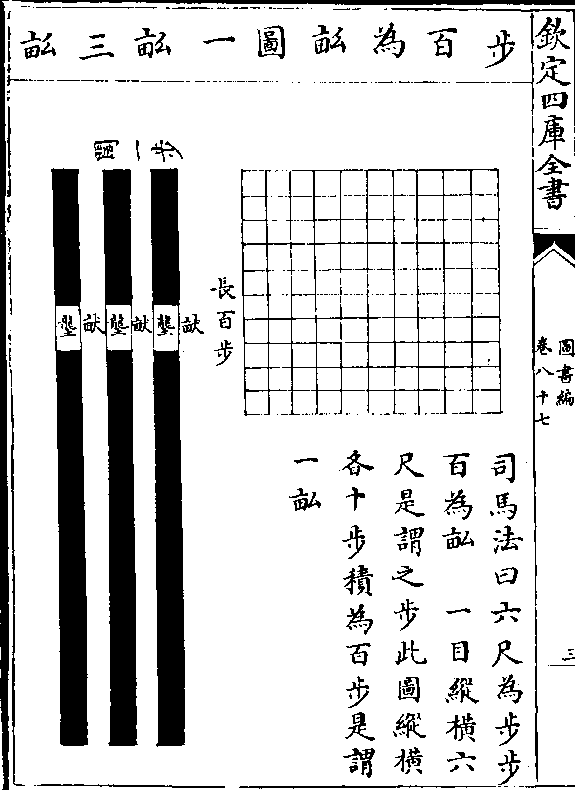 欽定四庫全書
圖書編
卷八十七
三
步百為畆圖一畆三畆
長百步
闊一步
畎
壟
畎
壟
畎
壟
司馬法曰六尺為步步
百為畆 一目縱橫六
尺是謂之步此圖縱橫
各十步積為百步是謂
一畆